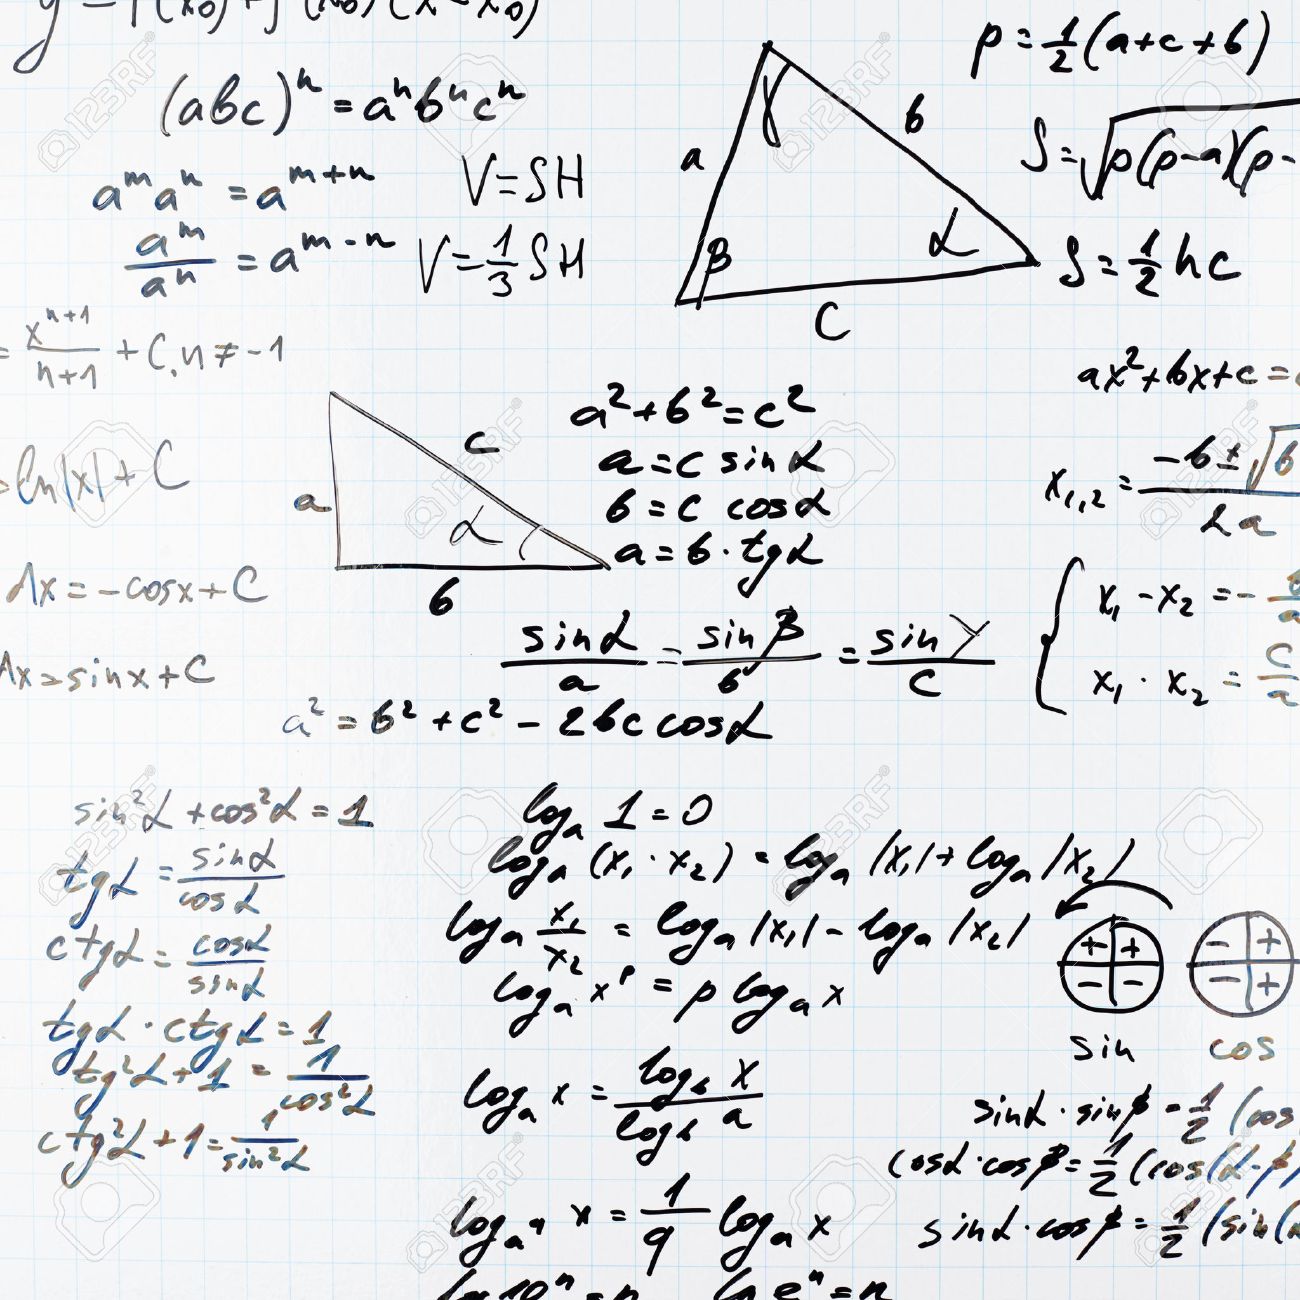 y = f(x₀)+f'(x₀)(x-x₀)
(abc)ⁿ = aⁿbⁿcⁿ
aᵐaⁿ = aᵐ⁺ⁿ
aᵐ/aⁿ = aᵐ⁻ⁿ
V=SH
V=1/3 SH
= xⁿ⁺¹/(n+1) + C, n ≠ -1
ln|x| + C
= -cosx + C
= sinx + C
γ
a
b
β
α
C
p = 1/2 (a+c+b)
S = √p(p-a)(p-
S = 1/2 hc
ax²+bx+c =
x₁,₂ = -b ± √b / 2a
x₁ - x₂ = -
x₁ · x₂ = c/a
a
c
α
b
a²+b²=c²
a = c sinα
b = c cosα
a = b · tgα
sinα/a = sinβ/b = sinγ/c
a² = b² + c² - 2bc cosα
sin²α + cos²α = 1
tgα = sinα/cosα
ctgα = cosα/sinα
tgα · ctgα = 1
tg²α + 1 = 1/cos²α
ctg²α + 1 = 1/sin²α
logₐ 1 = 0
logₐ (x₁ · x₂) = logₐ |x₁| + logₐ |x₂|
logₐ x₁/x₂ = logₐ |x₁| - logₐ |x₂|
logₐ xᵖ = p logₐ x
logₐ x = log_b x / log_b a
log_a^q x = 1/q logₐ x
lg 10ⁿ = n
ln eⁿ = n
+ +
- -
sin
- +
- +
cos
sinα · sinβ = 1/2 (cos
cosα · cosβ = 1/2 (cos(α-β)
sinα · cosβ = 1/2 (sin(α
123RF